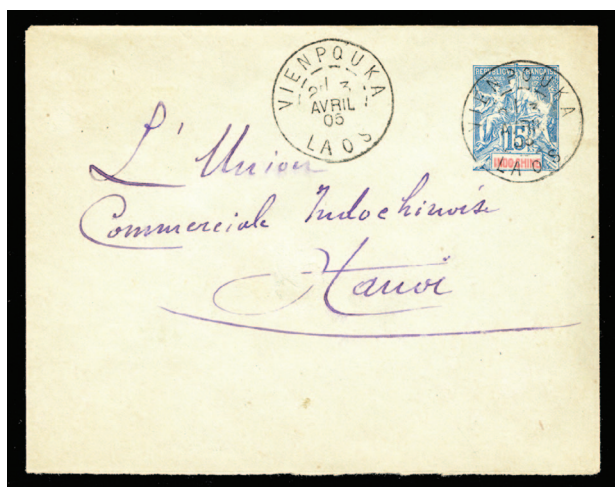 VIENPOUKA
2 3
AVRIL
05
LAOS
REPUBLIQUE FRANÇAISE
VIENPOUKA
15
INDO-CHINE
LAOS
L'Union
Commerciale Indochinoise
Hanoi